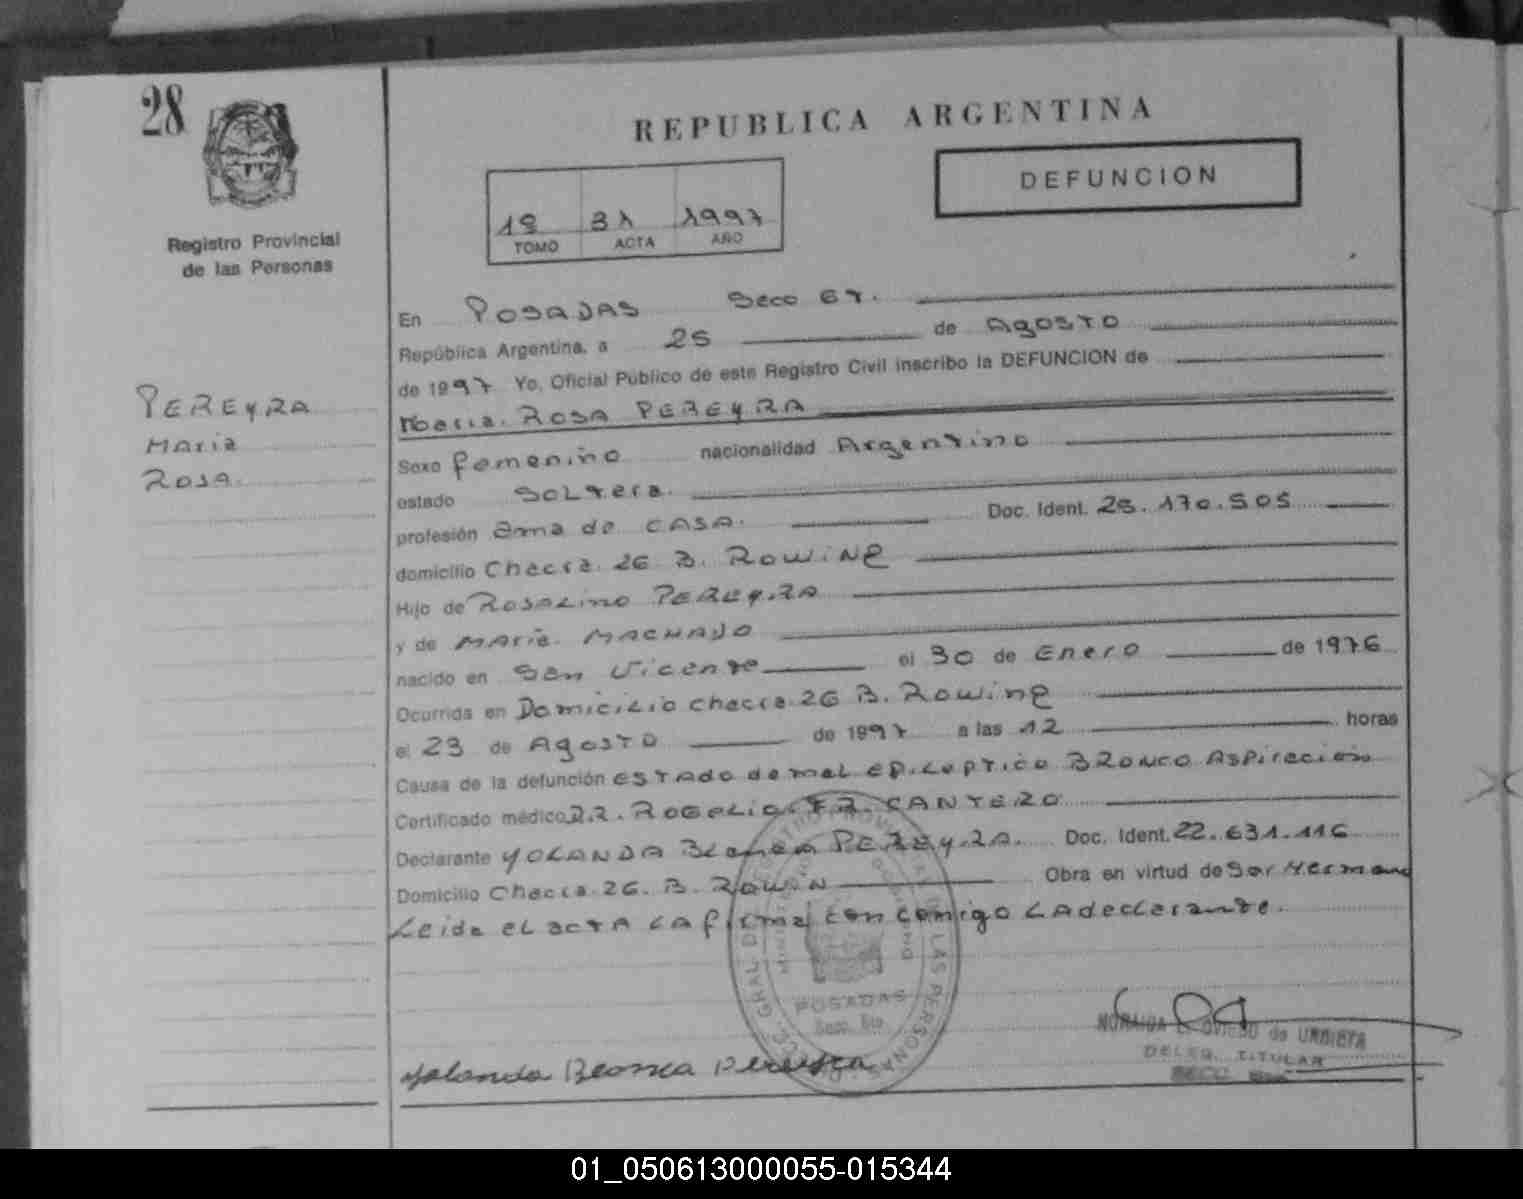 28
REPUBLICA ARGENTINA
DEFUNCION
18 31 1997
TOMO ACTA AÑO
Registro Provincial
de las Personas
PEREYRA
Maria
Rosa.
En POSADAS Secc 6ta.
República Argentina, a 25 de Agosto
de 1997 Yo, Oficial Público de este Registro Civil inscribo la DEFUNCION de
Maria. ROSA PEREYRA
Sexo femenino nacionalidad Argentino
estado SOLtera.
profesión ama de CASA. Doc. Ident. 25.170.505
domicilio Chacra. 26 B. ROWiNG
Hijo de ROSALINO PEREYRA
y de MAria. MACHADO
nacido en San Vicente el 30 de Enero de 1976
Ocurrida en Domicilio chacra. 26 B. Rowing
el 23 de Agosto de 1997 a las 12 horas
Causa de la defunción ESTADO de mal epileptico BRONCO ASPiracion
Certificado médico DR. ROGELIO FR. CANTERO
Declarante YOLANDA Blanca PEREYRA. Doc. Ident. 22.631.116
Domicilio Chacra. 26. B. ROWiN Obra en virtud de Ser Hermana
Leida el acta LA firma con comigo LA declarante.
POSADAS
Secc. 6ta
Yolanda Blanca Pereyra
OVIEDO de URBIETA
DELEG. TITULAR
01_050613000055-015344